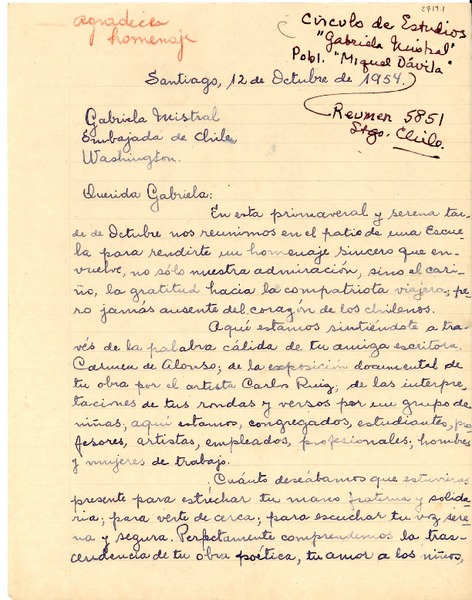 agradecer
homenaje
29191
Círculo de Estudios
"Gabriela Mistral"
Pobl. "Miguel Dávila"
Santiago, 12 de Octubre de 1954.
Reumen 5851
Stgo. Chile.
Gabriela Mistral
Embajada de Chile
Washington.
Querida Gabriela:
En esta primaveral y serena tar
de de Octubre nos reunimos en el patio de una Escue
la para rendirte un homenaje sincero que en-
vuelve, no sólo nuestra admiración, sino el cari-
ño, la gratitud hacia la compatriota viajera, pe
ro jamás ausente del corazón de los chilenos.
Aquí estamos sintiéndote a tra-
vés de la palabra cálida de tu amiga escritora
Carmen de Alonso; de la exposición documental de
tu obra por el artista Carlos Ruiz; de las interpre
taciones de tus rondas y versos por un grupo de
niñas; aquí estamos, congregados, estudiantes, pro
fesores, artistas, empleados, profesionales; hombres
y mujeres de trabajo.
Cuánto deseábamos que estuvieras
presente para estréchar tu mano fraterna y solida-
ria; para verte de cerca; para escuchar tu voz sere
na y segura. Perfectamente comprendemos la tras-
cendencia de tu obra poética, tu amor a los niños,